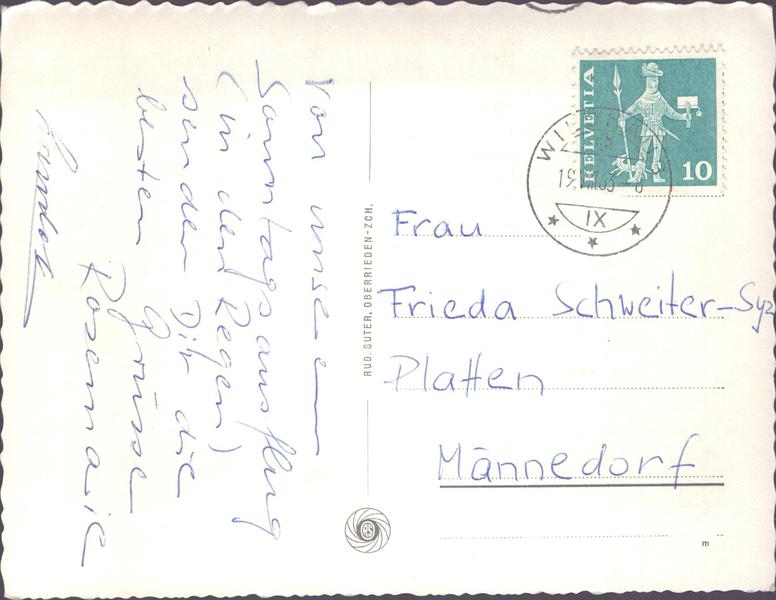 Von unserem
Sonntagsausflug
(in den Regen)
senden Dir die
besten Grüsse
Rosemarie
RUD. SUTER, OBERRIEDEN-ZCH.
HELVETIA
10
IX
Frau
Frieda Schweiter-Syz
Platten
Männedorf
m